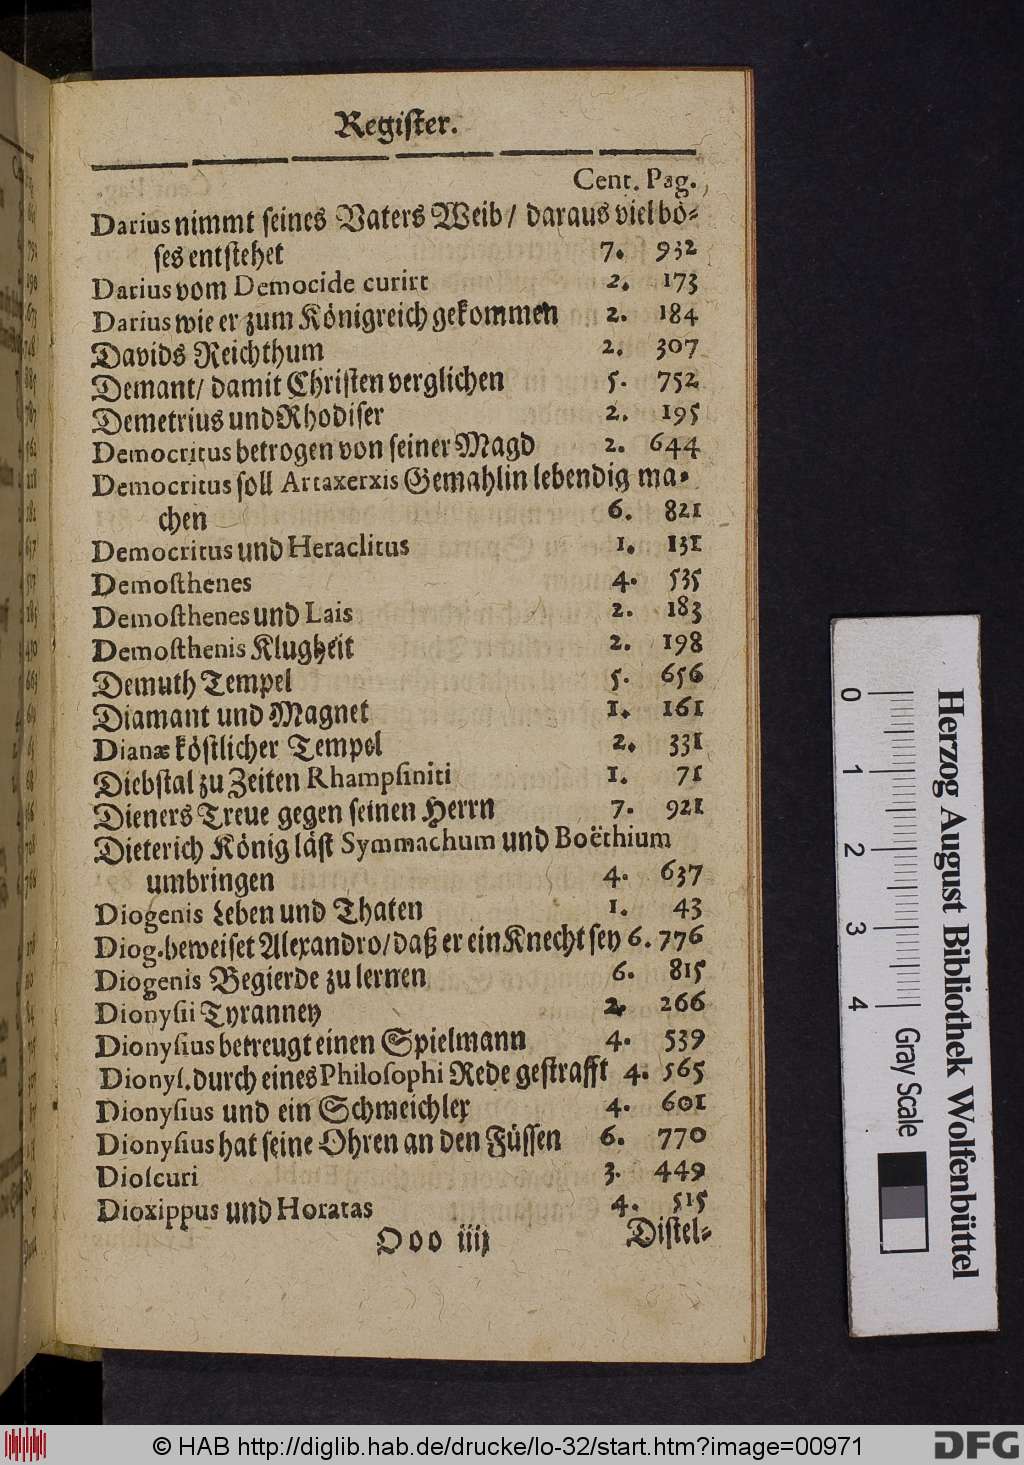 Register.
Cent. Pag.
Darius nimmt seines Vaters Weib / daraus viel bö-
ses entstehet 7. 932
Darius vom Democide curirt 2. 173
Darius wie er zum Königreich gekommen 2. 184
Davids Reichthum 2. 307
Demant / damit Christen verglichen 5. 752
Demetrius und Rhodiser 2. 195
Democritus betrogen von seiner Magd 2. 644
Democritus soll Artaxerxis Gemahlin lebendig ma-
chen 6. 821
Democritus und Heraclitus 1. 131
Demosthenes 4. 535
Demosthenes und Lais 2. 183
Demosthenis Klugheit 2. 198
Demuth Tempel 5. 656
Diamant und Magnet 1. 161
Dianæ köstlicher Tempel 2. 331
Diebstal zu Zeiten Rhampsiniti 1. 71
Dieners Treue gegen seinen Herrn 7. 921
Dieterich König läst Symmachum und Boëthium
umbringen 4. 637
Diogenis Leben und Thaten 1. 43
Diog. beweiset Alexandro / daß er ein Knecht sey 6. 776
Diogenis Begierde zu lernen 6. 815
Dionysii Tyranney 2. 266
Dionysius betreugt einen Spielmann 4. 539
Dionys. durch eines Philosophi Rede gestrafft 4. 565
Dionysius und ein Schmeichler 4. 601
Dionysius hat seine Ohren an den Füssen 6. 770
Dioscuri 3. 449
Dioxippus und Horatas 4. 515
Ooo iiij Distel-
0 1 2 3 4
Gray Scale
Herzog August Bibliothek Wolfenbüttel
© HAB http://diglib.hab.de/drucke/lo-32/start.htm?image=00971
DFG